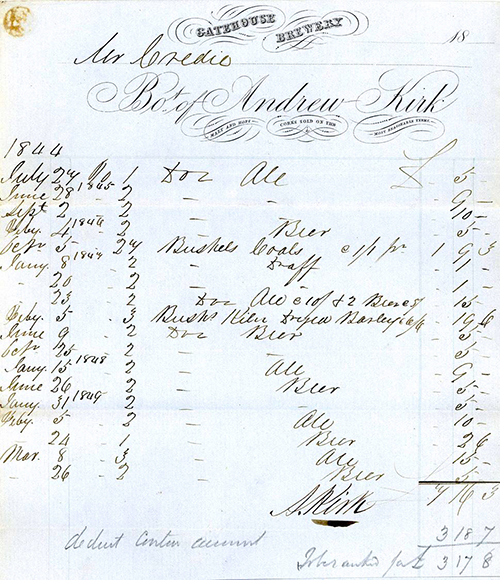 GATEHOUSE BREWERY
18
Mr Credie
Bot. of Andrew Kirk
MALT AND HOPS CORKS SOLD ON THE MOST REASONABLE TERMS
1844
July 24 1 Doz Ale £ - 5 -
June 28 1845 2 - - 9 -
Sept 2 2 - - 10 -
Feby. 4 1846 2 - Bier - 5 -
Octr 5 - 24 Bushels Coals 1 9 3
Jany. 8 1847 - 2 - Draff - 1 -
- 20 - 2 - - 1 -
- 23 - 2 Doz Ale & 2 Bier 15 -
Feby. 5 - 3 Bushs Kiln Dryed Barley 19 6
June 9 - 2 Doz Bier 5 -
Octr 25 - 2 - 5 -
Jany. 15 1848 - 2 - Ale 9 -
June 26 - 2 - Bier 5 -
Jany. 31 1849 - 2 - 5 -
Feby. 5 - 2 - Ale 10 -
- 24 - 1 - Bier 2 6
Mar. 8 - 3 - Ale 15 -
- 26 - 2 - Bier 5 -
7 16 3
A. Kirk
3 18 7
deduct Contra account
To be ranked for £ 3 17 8